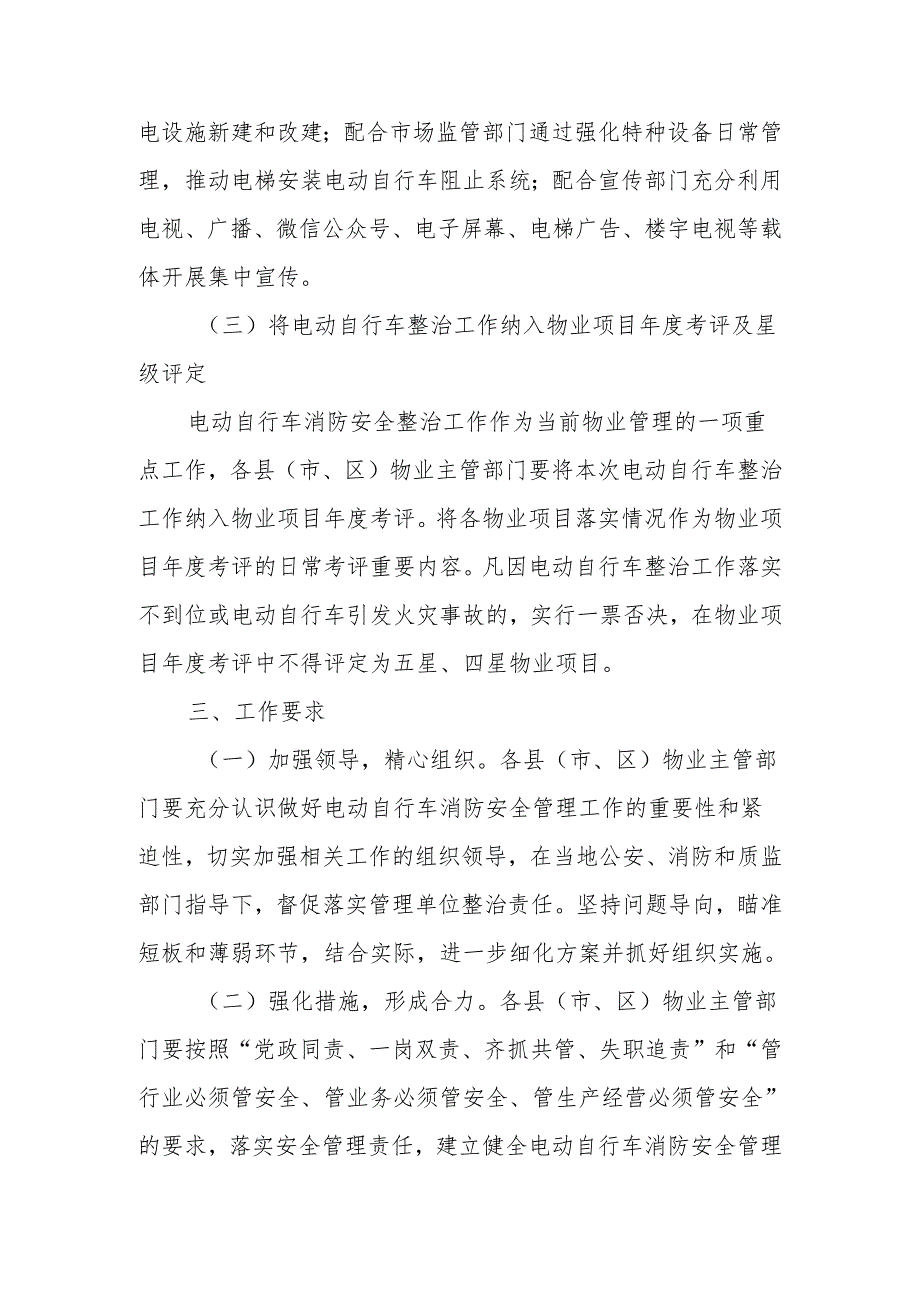 电设施新建和改建；配合市场监管部门通过强化特种设备日常管
理，推动电梯安装电动自行车阻止系统；配合宣传部门充分利用
电视、广播、微信公众号、电子屏幕、电梯广告、楼宇电视等载
体开展集中宣传。
（三）将电动自行车整治工作纳入物业项目年度考评及星
级评定
电动自行车消防安全整治工作作为当前物业管理的一项重
点工作，各县（市、区）物业主管部门要将本次电动自行车整治
工作纳入物业项目年度考评。将各物业项目落实情况作为物业项
目年度考评的日常考评重要内容。凡因电动自行车整治工作落实
不到位或电动自行车引发火灾事故的，实行一票否决，在物业项
目年度考评中不得评定为五星、四星物业项目。
三、工作要求
（一）加强领导，精心组织。各县（市、区）物业主管部
门要充分认识做好电动自行车消防安全管理工作的重要性和紧
迫性，切实加强相关工作的组织领导，在当地公安、消防和质监
部门指导下，督促落实管理单位整治责任。坚持问题导向，瞄准
短板和薄弱环节，结合实际，进一步细化方案并抓好组织实施。
（二）强化措施，形成合力。各县（市、区）物业主管部
门要按照“党政同责、一岗双责、齐抓共管、失职追责”和“管
行业必须管安全、管业务必须管安全、管生产经营必须管安全”
的要求，落实安全管理责任，建立健全电动自行车消防安全管理